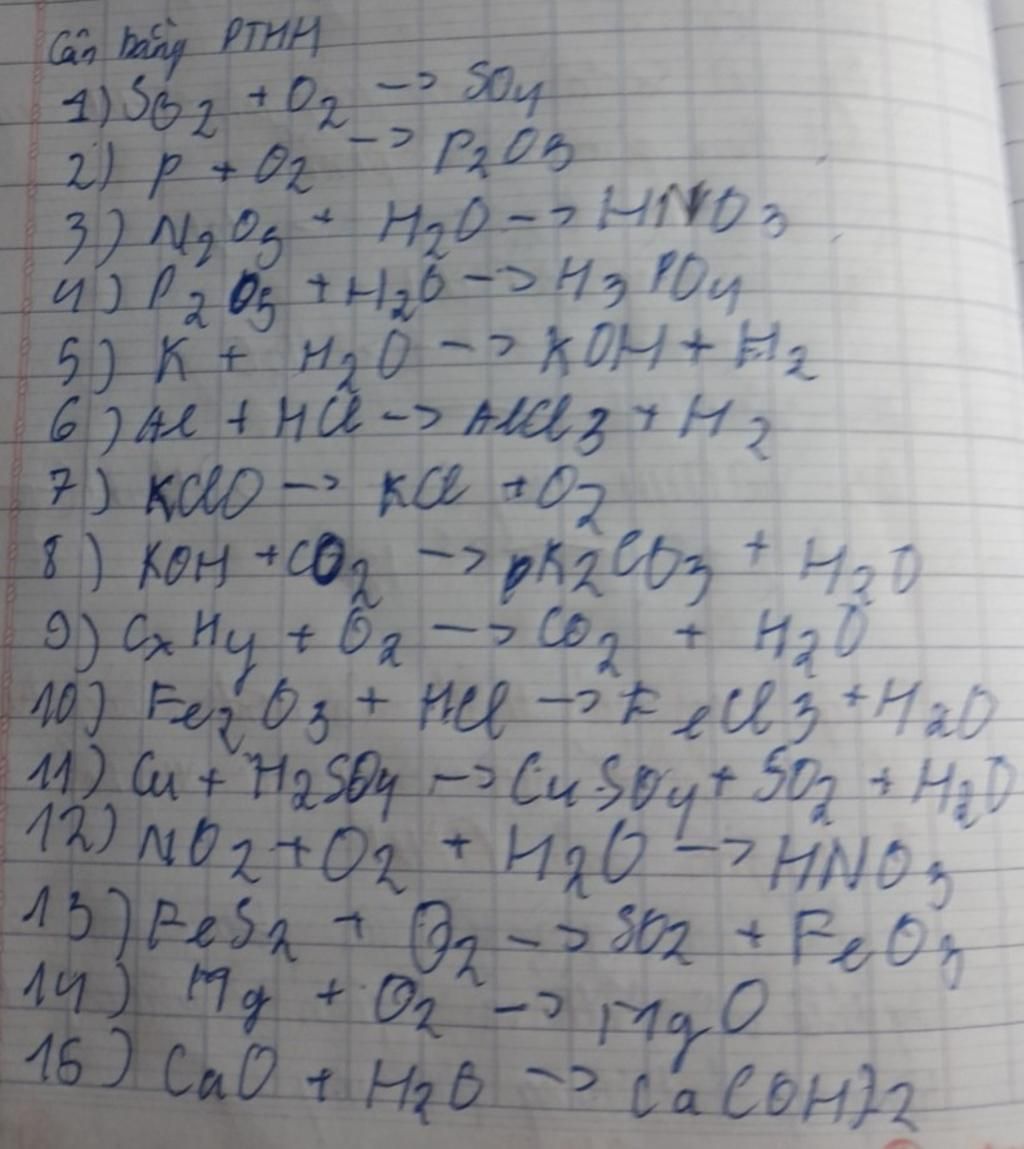 Cân bằng PTHH
1) SO2 + O2 -> SO4
2) P + O2 -> P2O5
3) N2O5 + H2O -> HNO3
4) P2O5 + H2O -> H3PO4
5) K + H2O -> KOH + H2
6) Al + HCl -> AlCl3 + H2
7) KClO -> KCl + O2
8) KOH + CO2 -> K2CO3 + H2O
9) CxHy + O2 -> CO2 + H2O
10) Fe2O3 + HCl -> FeCl3 + H2O
11) Cu + H2SO4 -> CuSO4 + SO2 + H2O
12) NO2 + O2 + H2O -> HNO3
13) FeS2 + O2 -> SO2 + FeO3
14) Mg + O2 -> MgO
15) CaO + H2O -> Ca(OH)2